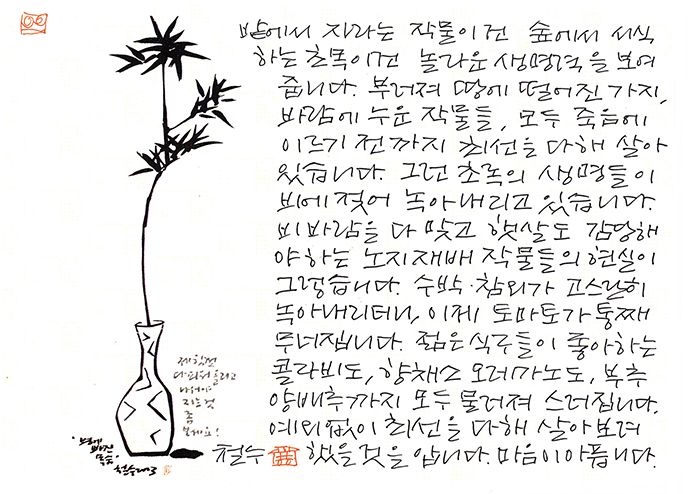 밭에서 자라는 작물이건 숲에서 서식
하는 초목이건 놀라운 생명력을 보여
줍니다. 부러져 땅에 떨어진 가지,
바람에 누운 작물들, 모두 죽음에
이르기 전까지 최선을 다해 살아
있습니다. 그런 초록의 생명들이
비에 젖어 녹아내리고 있습니다.
비바람을 다 맞고 햇살도 감당해
야하는 노지재배 작물들의 현실이
그렇습니다. 수박·참외가 고스란히
녹아내리더니, 이제 토마토가 통째
무너집니다. 젊은 식구들이 좋아하는
콜라비도, 향채소 오레가노도, 부추
양배추까지 모두 물러져 스러집니다.
예외없이 최선을 다해 살아보려
했을 것을 압니다. 마음이 아픕니다.
철수
제 할 일
다
지는 것
좀
보세요!